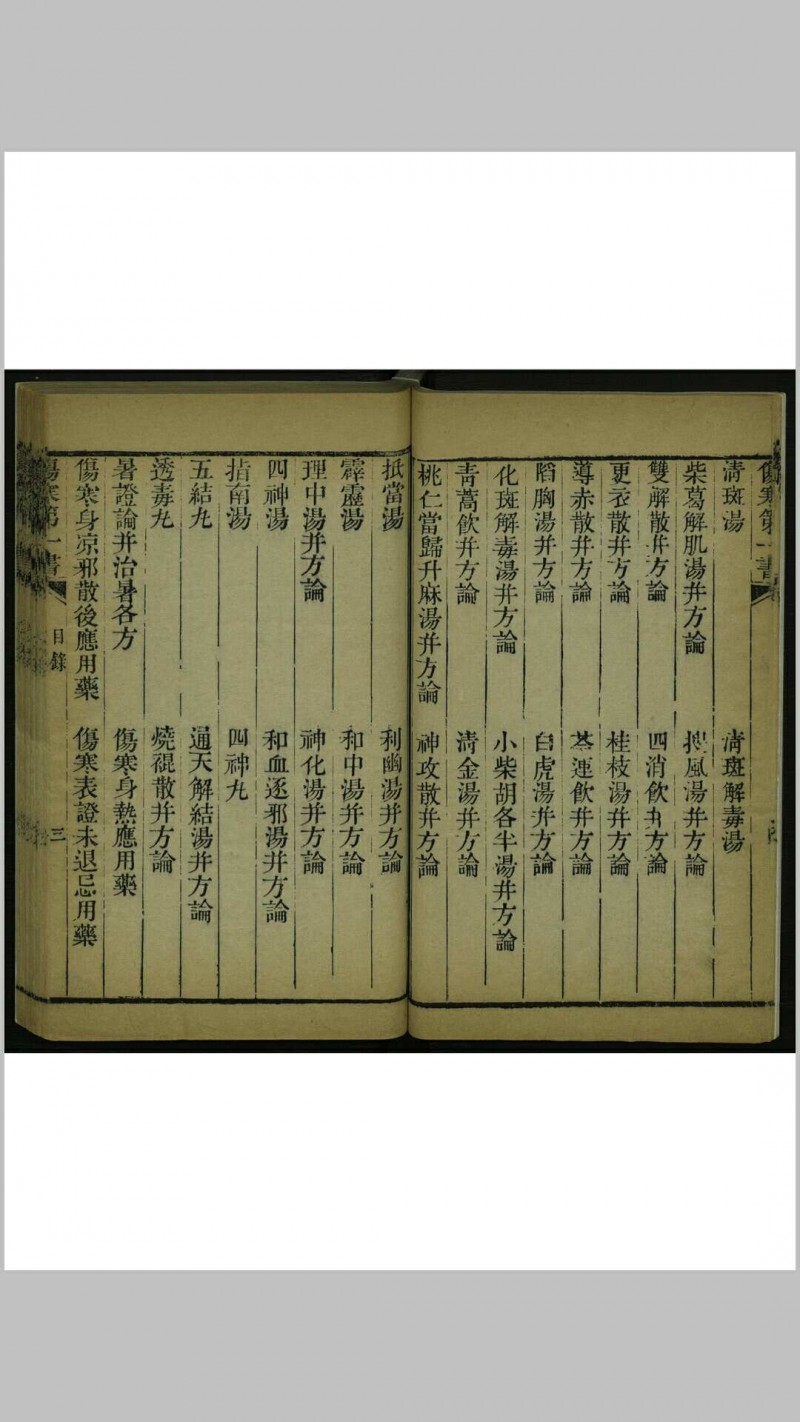 傷寒第一書
清斑湯
清斑解毒湯
柴葛解肌湯幷方論
搜風湯幷方論
雙解散幷方論
四消飲幷方論
更衣散幷方論
桂枝湯幷方論
導赤散幷方論
苓連飲幷方論
陷胸湯幷方論
白虎湯幷方論
化斑解毒湯幷方論
小柴胡各半湯幷方論
靑蒿飲幷方論
淸金湯幷方論
桃仁當歸升麻湯幷方論
神攻散幷方論
抵當湯
利幽湯幷方論
霹靈湯
和中湯幷方論
理中湯幷方論
神化湯幷方論
四神湯
和血逐邪湯幷方論
指南湯
四神九
五結九
通天解結湯幷方論
透毒九
燒裩散幷方論
暑證論幷治暑各方
傷寒身熱應用藥
傷寒身凉邪散後應用藥
傷寒表證未退忌用藥
傷寒第一書
目錄
三